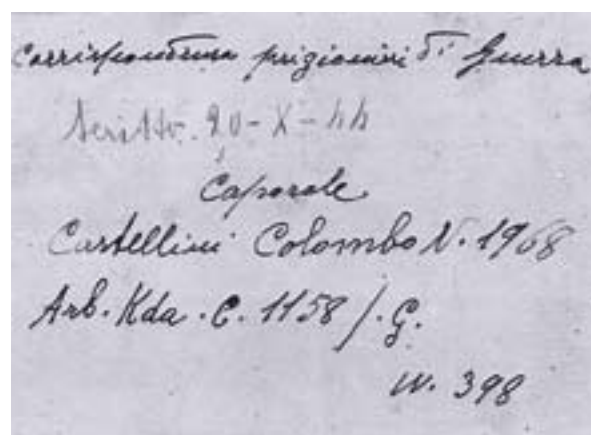 Corrispondenza prigionieri di Guerra
Scritto. 20-X-44
Caporale
Castellini Colombo N. 1968
Arb. Kda. C. 1158 /. G.
W. 398